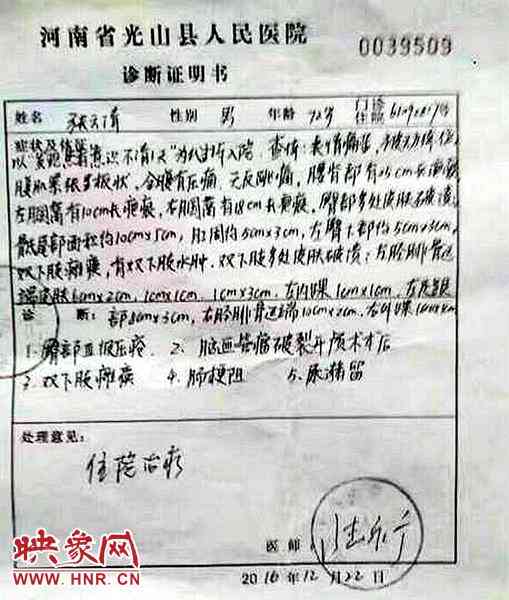 河南省光山县人民医院
0039509
诊断证明书
姓名 性别 男 年龄 72岁 门诊 住院
症状及体征
以 意识不清1天"为代诉入院. 查体:
腹肌紧张呈板状, 全腹有压痛, 无反跳痛, 腰背部有25cm长
左腘窝有10cm长疤痕, 右腘窝有18cm长疤痕, 臀部多处皮肤破溃
骶尾部面积约10cm×5cm, 肛周约5cm×3cm, 左臀下部约5cm×3cm,
双下肢瘫痪, 有双下肢水肿. 双下肢多处皮肤破溃: 左胫腓骨近
端皮肤6cm×2cm, 1cm×1cm, 1cm×3cm, 左内踝1cm×1cm, 左足跟
诊 断: 部8cm×3cm, 右胫腓骨近端10cm×2cm, 右外踝
1. 臀部Ⅲ级压疮 2. 脑血管瘤破裂开颅术后
3. 双下肢瘫痪 4. 肠梗阻 5. 尿潴留
处理意见:
住院治疗
医师
2016年12月22日
映象网
WWW.HNR.CN